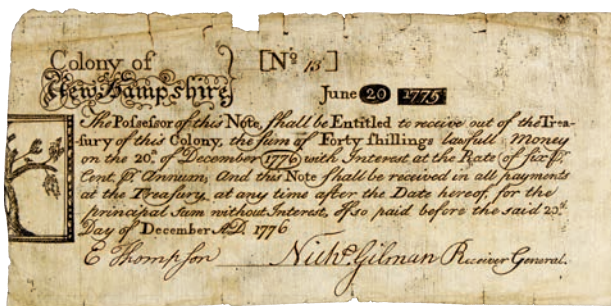 Colony of
New Hampshire
[Nº 13]
June 20 1775
The Possessor of this Note, shall be Entitled to receive out of the Trea-
sury of this Colony, the sum of Forty shillings lawfull Money
on the 20th of December 1776 with Interest at the Rate of six P.
Cent, P. Annum, And this Note shall be received in all payments
at the Treasury, at any time after the Date hereof, for the
principal sum without Interest, If so paid before the said 20th
Day of December A.D. 1776
E Thompson Nichs. Gilman Receiver General.